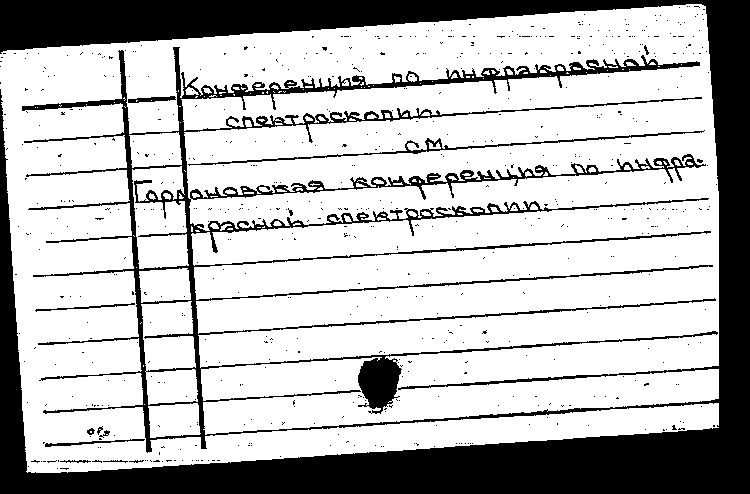 Конференция по инфракрасной
спектроскопии.
см.
Гордоновская конференция по инфра-
красной спектроскопии.